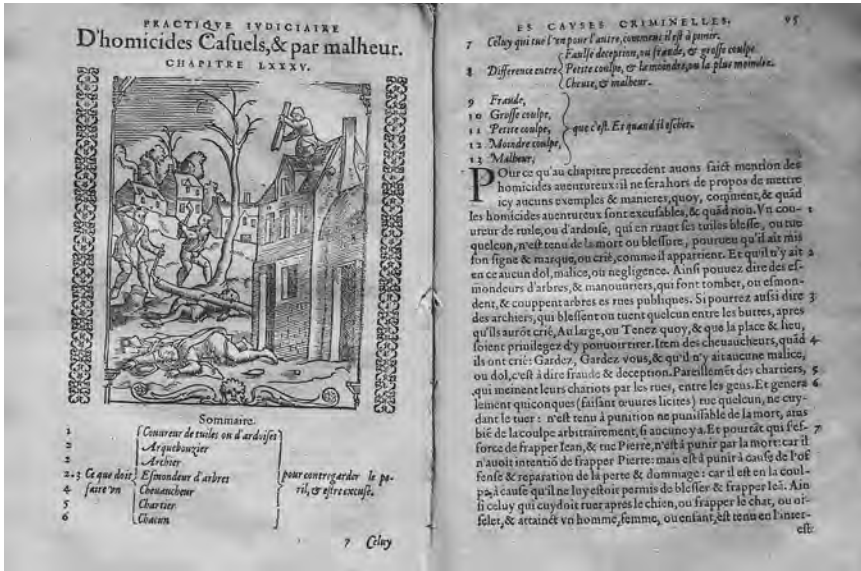 PRACTIQVE IVDICIAIRE
D'homicides Casuels,& par malheur.
CHAPITRE LXXXV.
Sommaire.
1 Couureur de tuiles ou d'ardoises
2 Arquebouzier
2 Archier
2.3 Ce que doit Esmondeur d'arbres pour contregarder le pe-
4 faire vn Cheuaucheur ril, & estre excusé.
5 Chartier
6 Chacun
7 Celuy
ES CAVSES CRIMINELLES. 95
7 Celuy qui tue l'vn pour l'autre, comment il est à punir.
Faulse deception, ou fraude, & grosse coulpe.
8 Difference entre Petite coulpe, & la moindre, ou la plus moindre.
Cheute, & malheur.
9 Fraude,
10 Grosse coulpe,
11 Petite coulpe, que c'est. Et quand il eschet.
12 Moindre coulpe,
13 Malheur,
POur ce qu'au chapitre precedent auons faict mention des
homicides auentureux: il ne sera hors de propos de mettre
icy aucuns exemples & manieres, quoy, comment, & quãd
les homicides auentureux sont excusables, & quãd non. Vn cou- 1
ureur de tuile, ou d'ardoise, qui en ruant ses tuiles blesse, ou tue
quelcun, n'est tenu de la mort ou blessure, pourueu qu'il ait mis
son signe & marque, ou crié, comme il appartient. Et qu'il n'y ait 2
en ce aucun dol, malice, ou negligence. Ainsi pouuez dire des es-
mondeurs d'arbres, & manouuriers, qui font tomber, ou esmon-
dent, & couppent arbres es rues publiques. Si pourrez aussi dire 3
des archiers, qui blessent ou tuent quelcun entre les buttes, apres
qu'ils aurõt crié, Au large, ou Tenez quoy, & que la place & lieu,
soient priuilegez d'y pouuoir tirer. Item des cheuaucheurs, quãd 4
ils ont crié: Gardez, Gardez vous, & qu'il n'y ait aucune malice,
ou dol, c'est à dire fraude & deception. Pareillemẽt des chartiers, 5
qui meinent leurs chariots par les rues, entre les gens. Et genera 6
lement quiconques (faisant œuures licites) tue quelcun, ne cuy-
dant le tuer: n'est tenu à punition ne punissable de la mort, ains
biẽ de la coulpe arbitrairement, si aucune y a. Et pourtãt qui s'ef- 7
force de frapper Iean, & tue Pierre, n'est à punir par la mort: car il
n'auoit intentiõ de frapper Pierre: mais est à punir à cause de l'of
fense & reparation de la perte & dommage: car il est en la coul-
pe, à cause qu'il ne luy estoit permis de blesser & frapper Ieã. Ain
si celuy qui cuydoit ruer apres le chien, ou frapper le chat, ou oi-
selet, & attainct vn homme, femme, ou enfant, est tenu en l'inter-
est: